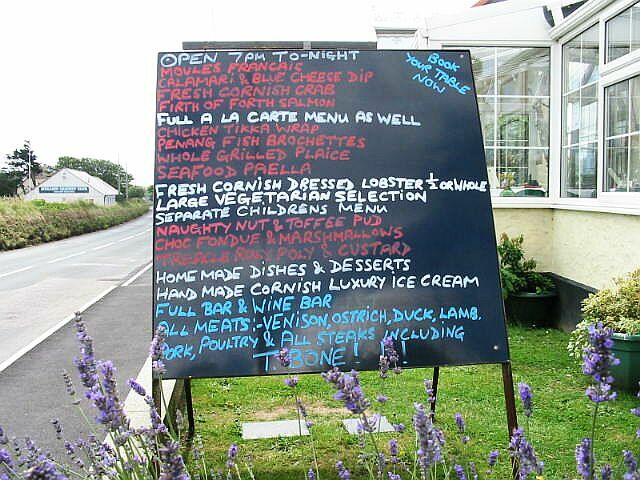 OPEN 7PM TO-NIGHT
BOOK YOUR TABLE NOW
MOULES FRANCAIS
CALAMARI & BLUE CHEESE DIP
FRESH CORNISH CRAB
FIRTH OF FORTH SALMON
FULL A LA CARTE MENU AS WELL
CHICKEN TIKKA WRAP
PENANG FISH BROCHETTES
WHOLE GRILLED PLAICE
SEAFOOD PAELLA
FRESH CORNISH DRESSED LOBSTER ½ OR WHOLE
LARGE VEGETARIAN SELECTION
SEPARATE CHILDRENS MENU
NAUGHTY NUT & TOFFEE PUD
CHOC FONDUE & MARSHMALLOWS
TREACLE ROLY POLY & CUSTARD
HOME MADE DISHES & DESSERTS
HAND MADE CORNISH LUXURY ICE CREAM
FULL BAR & WINE BAR
ALL MEATS:-VENISON, OSTRICH, DUCK, LAMB.
PORK, POULTRY & ALL STEAKS INCLUDING
T.BONE! ! !